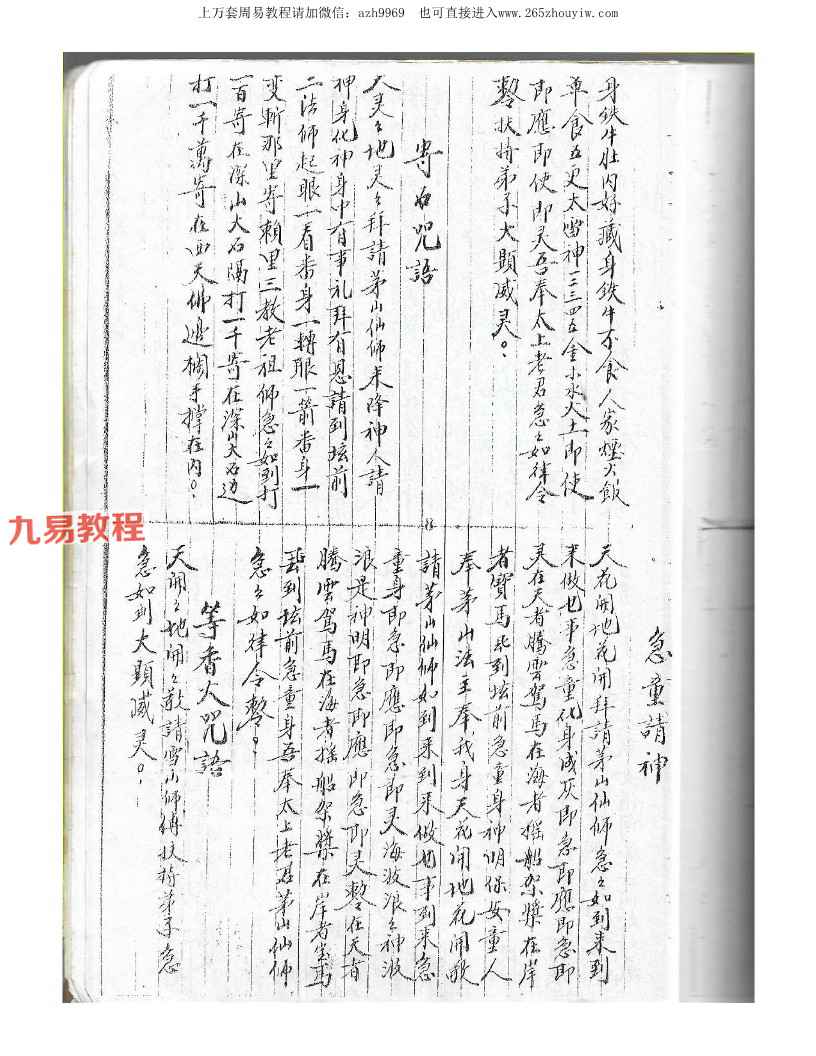 上万套周易教程请加微信：azh9969　也可直接进入www.265zhouyiw.com
身铁牛肚内好藏身铁牛不食人家煙火飯
单食五更太雷神一二三四五金木水火土即使
即應即使即灵吾奉太上老君急々如律令
扶持弟子大顯威灵。
寄石咒語
天灵々地灵々拜請茅山仙师来降神人請
神身化神身中有事礼拜有恩請到坛前
二法师起眼一看番身一轉眼一箭番身一
变斬那里寄賴里三教老祖师急々如到打
一百寄在深山大石隔打一千寄在深山大石边
打一千萬寄在西天佛边欄手撑在内。
急童請神
天花開地花開拜請茅山仙师急々如到来到
来做也事急童化身成灰即急即應即急即
灵在天者騰雲駕馬在海者摇船架槳在岸
者寶馬到坛前急童身神明保女童人
奉茅山法主奉我身天花開地花開敬
請茅山仙师如到来到来做也事到来急
童身即急即應即急即灵海波浪々神波
浪是神明即急即應即急即灵在天者
騰雲駕馬在海者摇船架槳在岸者坐馬
到坛前急童身吾奉太上老君茅山仙师
急々如律令。
等香火咒語
天開々地開々敬請雪山师傅扶持弟子急
急如到大顯威灵。
九易教程